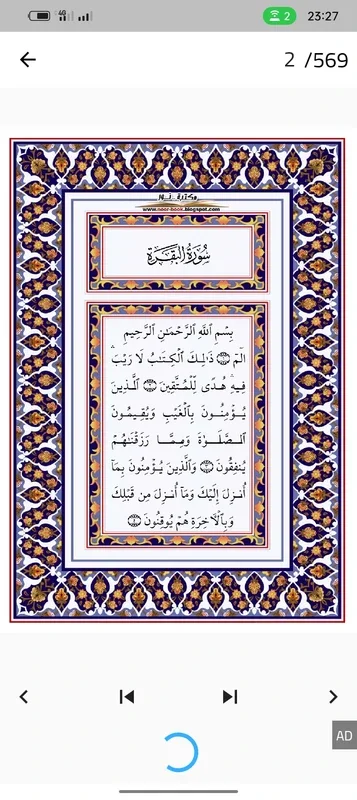 4G
2
23:27
2 /569
مكتبة نور
www.noor-book.blogspot.com
سُورَةُ البَقَرَةِ
بِسْمِ اللَّهِ الرَّحْمَٰنِ الرَّحِيمِ
الٓمٓ ۝١ ذَٰلِكَ الْكِتَابُ لَا رَيْبَ ۛ
فِيهِ ۛ هُدًى لِّلْمُتَّقِينَ ۝٢ الَّذِينَ
يُؤْمِنُونَ بِالْغَيْبِ وَيُقِيمُونَ
الصَّلَوٰةَ وَمِمَّا رَزَقْنَٰهُمْ
يُنفِقُونَ ۝٣ وَالَّذِينَ يُؤْمِنُونَ بِمَا
أُنزِلَ إِلَيْكَ وَمَا أُنزِلَ مِن قَبْلِكَ
وَبِالْآخِرَةِ هُمْ يُوقِنُونَ ۝٤
AD